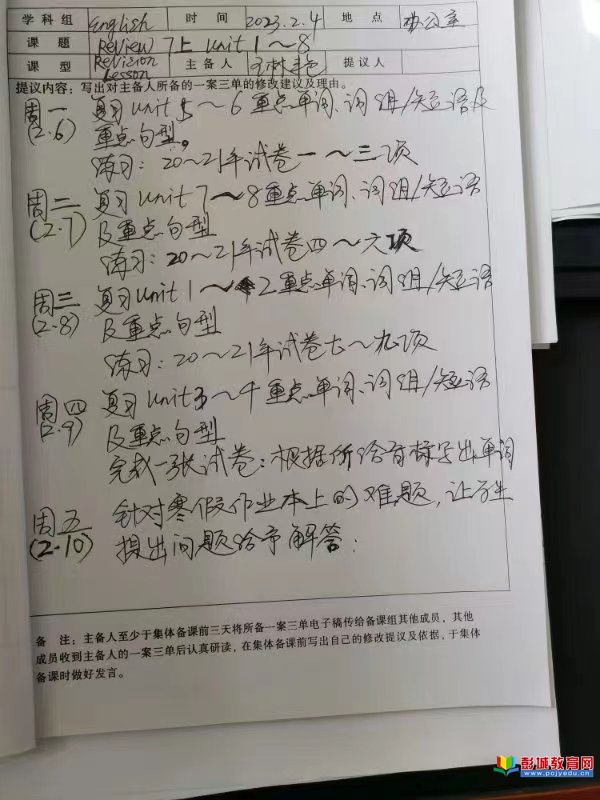 学科组 English 时间 2023.2.4 地点 办公室
课题 Review 7上 Unit 1～8
课型 Revision Lesson 主备人 提议人
提议内容：写出对主备人所备的一案三单的修改建议及理由。
周一 复习 Unit 5～6 重点单词、词组/短语及
(2.6) 重点句型。
练习：20～21年试卷一～三项
周二 复习 Unit 7～8 重点单词、词组/短语
(2.7) 及重点句型
练习：20～21年试卷四～六项
周三 复习 Unit 1～2 重点单词、词组/短语
(2.8) 及重点句型
练习：20～21年试卷七～九项
周四 复习 Unit 3～4 重点单词、词组/短语
(2.9) 及重点句型
完成一张试卷：根据所给音标写出单词
周五 针对寒假作业本上的难题，让学生
(2.10) 提出问题给予解答；
备 注：主备人至少于集体备课前三天将所备一案三单电子稿传给备课组其他成员，其他
成员收到主备人的一案三单后认真研读，在集体备课前写出自己的修改提议及依据，于集体
备课时做好发言。
彭城教育网
www.pcjyedu.com